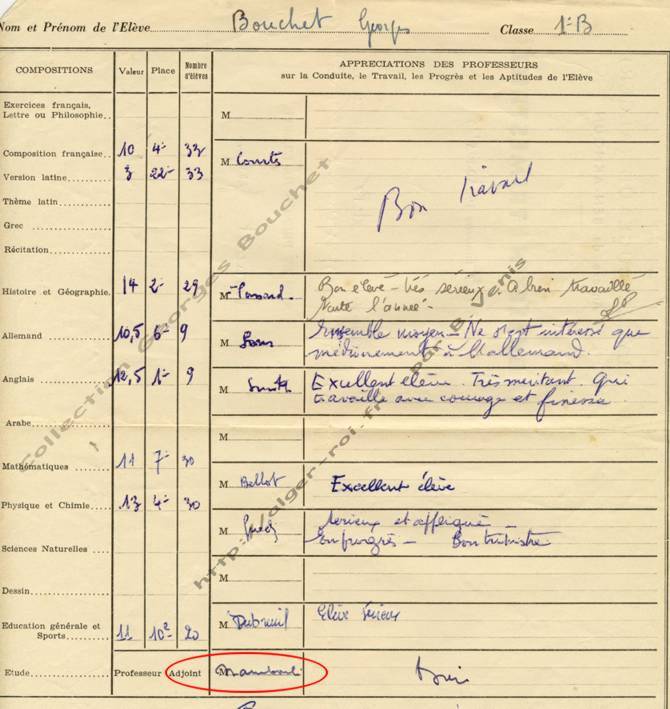 Nom et Prénom de l'Elève Bouchet Georges Classe 1º B
COMPOSITIONS Valeur Place Nombre d'élèves APPRECIATIONS DES PROFESSEURS
sur la Conduite, le Travail, les Progrès et les Aptitudes de l'Elève
Exercices français,
Lettre ou Philosophie M
Composition française 10 4e 33 M Courts
Version latine 3 22e 33
Bon travail
Thème latin
Grec
Récitation
Histoire et Géographie 14 2e 29 M Bon élève - très sérieux. A bien travaillé
toute l'année.
Allemand 10,5 6e 9 M Ensemble moyen - Ne s'est intéressé que
médiocrement à l'allemand.
Anglais 12,5 1e 9 M Smith Excellent élève. Très méritant. Qui
travaille avec courage et finesse
Arabe M
Mathématiques 11 7e 30 M Bellot Excellent élève
Physique et Chimie 13 4e 30 M Sérieux et appliqué -
En progrès - Bon trimestre
Sciences Naturelles
M
Dessin
Education générale et
Sports 11 10e 20 M Dubreuil Elève sérieux
Etude Professeur Adjoint M
Collection Georges Bouchet
http://alger-roi.fr par B.Venis